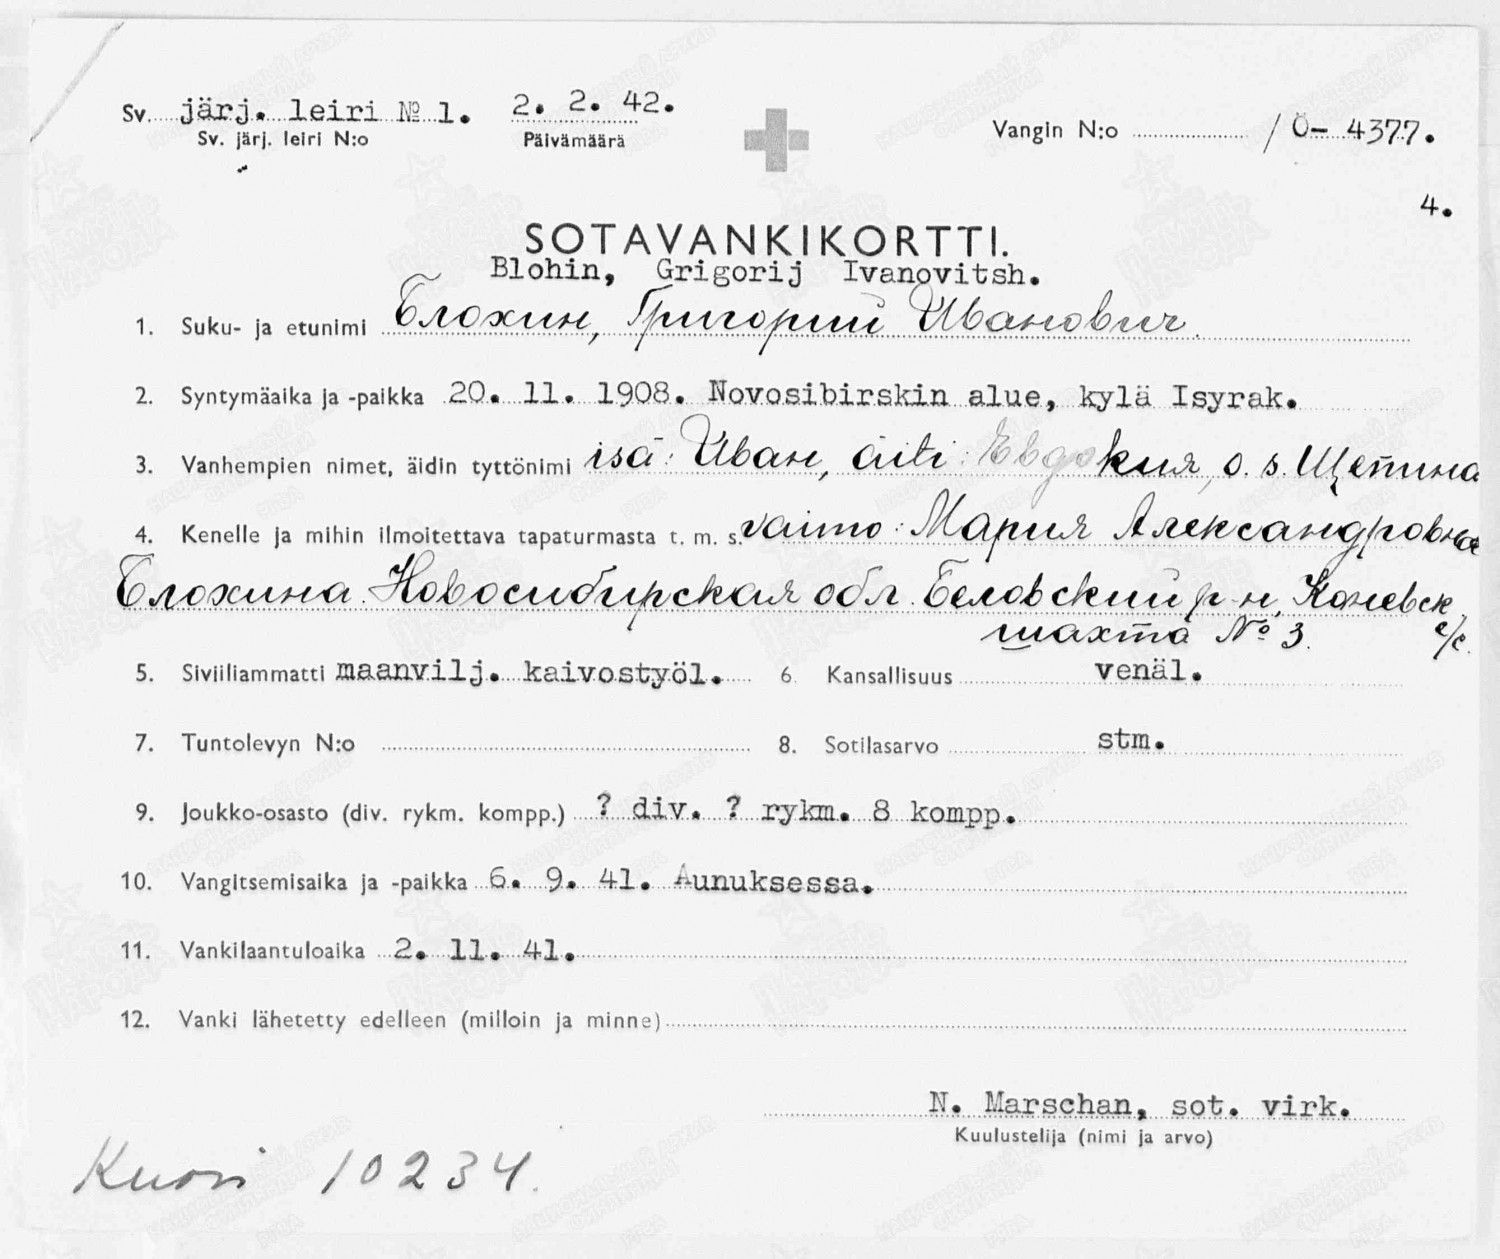 Sv. järj. leiri № 1. 2. 2. 42.
Sv. järj. leiri N:o Päivämäärä
Vangin N:o / Ö- 4377.
4.
SOTAVANKIKORTTI.
Blohin, Grigorij Ivanovitsh.
1. Suku- ja etunimi Блохин, Григорий Иванович.
2. Syntymäaika ja -paikka 20. 11. 1908. Novosibirskin alue, kylä Isyrak.
3. Vanhempien nimet, äidin tyttönimi isä: Иван, äiti: Евдокия, o. s. Щепина
4. Kenelle ja mihin ilmoitettava tapaturmasta t. m. s. vaimo: Мария Александровна
Блохина. Новосибирская обл. Беловский р-н,
шахта № 3. с/с.
5. Siviiliammatti maanvilj. kaivostyöl. 6. Kansallisuus venäl.
7. Tuntolevyn N:o 8. Sotilasarvo stm.
9. Joukko-osasto (div. rykm. kompp.) ? div. ? rykm. 8 kompp.
10. Vangitsemisaika ja -paikka 6. 9. 41. Aunuksessa.
11. Vankilaantuloaika 2. 11. 41.
12. Vanki lähetetty edelleen (milloin ja minne)
N. Marschan, sot. virk.
Kuulustelija (nimi ja arvo)
Kuori 10234.